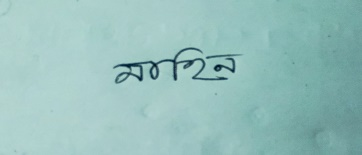 মাহিন